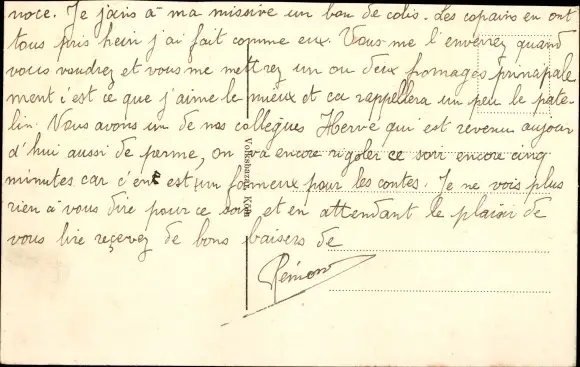 noce. Je joins à ma missive un bon de colis. Les copains en ont
tous pris hein j'ai fait comme eux. Vous me l'enverrez quand
vous voudrez et vous me mettrez un ou deux fromages prinapale
ment c'est ce que j'aime le mieux et ca rappellera un peu le pate-
lin. Nous avons un de nos collegues Hervé qui est revenu aujour
d'hui aussi de perme, on va encore rigoler ce soir encore cinq
minutes car c'en est un fameux pour les contes. Je ne vois plus
rien à vous dire pour ce soir et en attendant le plaisir de
vous lire reçevez de bons baisers de
Volksbazar, Köln